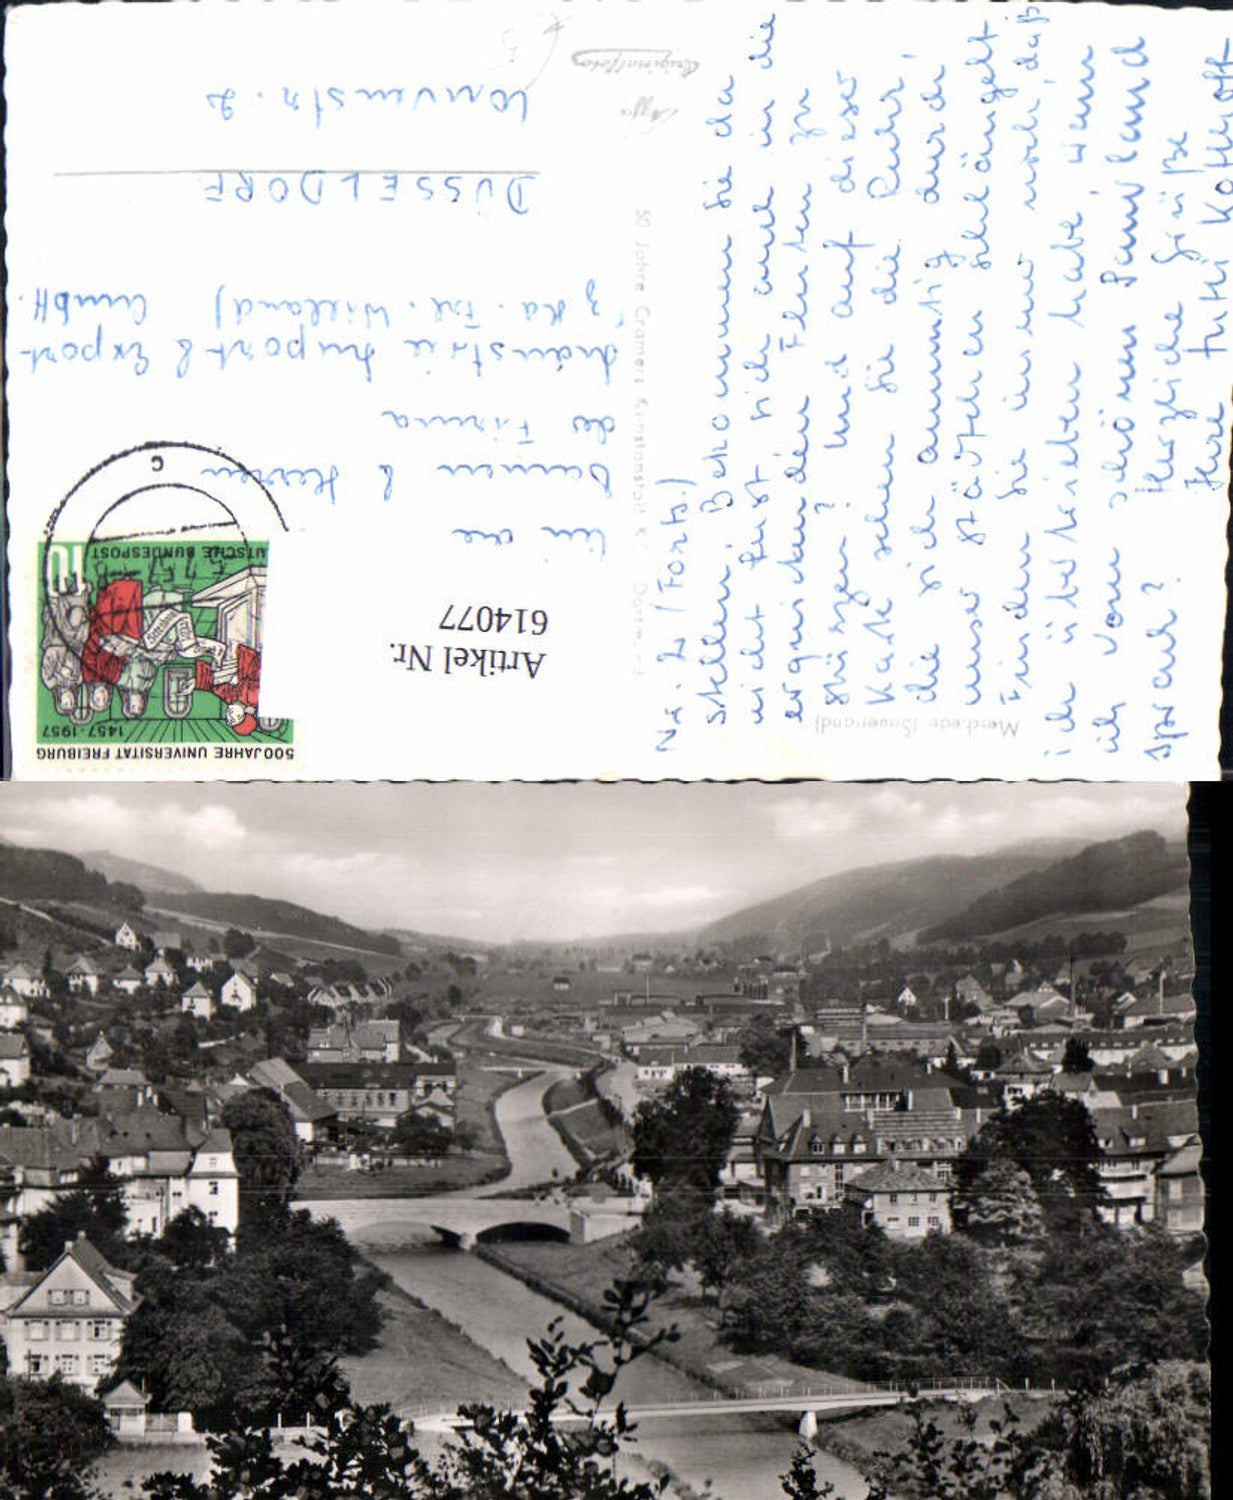 Nr. 2 (Forts.)
stellen. Bekommen Sie da
nicht Lust sich auch in die
erquickenden Fluten zu
stürzen? Und auf dieser
Karte sehen Sie die Ruhr,
die sich anmutig durch
unser Städtchen schlängelt.
Finden Sie immer noch, daß
ich übertrieben habe, wenn
ich vom schönen Sauerland
sprach?
Herzliche Grüße
Ihre Kotthoff
Meschede (Sauerland)
50 Jahre Cramers Kunstanstalt K. Dortmund
Originalfoto
Agfa
An die
Damen & Herren
der Firma
Industrie Import & Export
GmbH.
z. Hd. Frl. Wieland
DÜSSELDORF
str. 2
Artikel Nr.
614077
500 JAHRE UNIVERSITÄT FREIBURG
1457-1957
10
UTSCHE BUNDESPOST